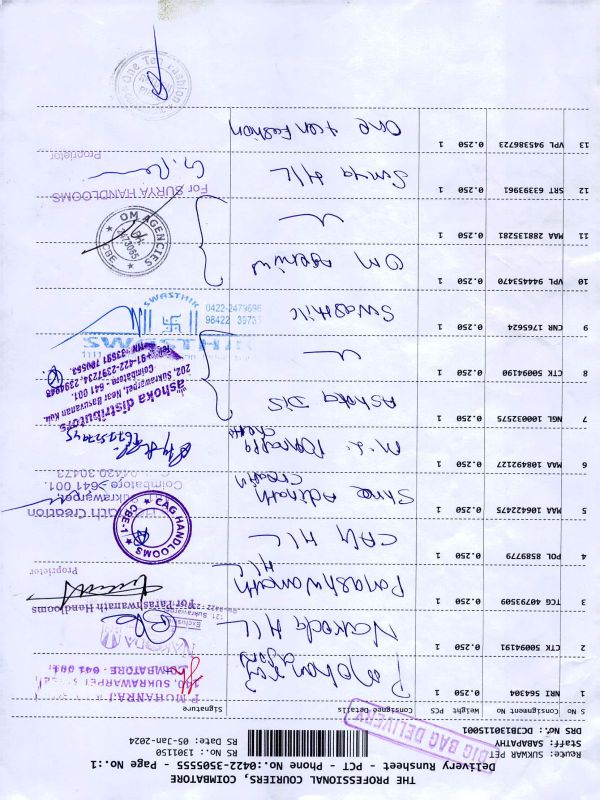 THE PROFESSIONAL COURIERS, COIMBATORE
Delivery Runsheet - PCT - Phone No.:0422-3505555 - Page No.:1
Route: SUKWAR PET
Staff: SABAPATHY
DRS No.: DCJB130115001
RS No.: 1301150
RS Date: 05-Jan-2024
BIG BAG DELIVERY
S No Consignment No Weight PCS Consignee Details Signature
1 NRI 564304 0.250 1
P MOHANRAJ
SUKRAWARPET
COIMBATORE - 641 001.
2 CTK 50094191 0.250 1 Nakoda H/L
NAKODA
3 TCG 40793509 0.250 1 Parashwanath H/L
For Parashwanath Handlooms
Proprietor
4 POL 8589779 0.250 1 CAG H/L
CAG HANDLOOMS
CBE-1
5 MAA 106422475 0.250 1 Shree Adinath Creation
ath Creation
ukrawarpet,
Coimbatore - 641 001.
6 MAA 108492127 0.250 1
7 NGL 100032575 0.250 1 Ashoka Dis
ashoka distributors
202, Sukrawarpet, Near Basuvanan Koil,
Coimbatore - 641 001.
8 CTK 50094190 0.250 1 "
9 CNR 1755624 0.250 1 Swasthik
SWASTHIK
0422-2479696
98422
10 VPL 944453470 0.250 1 OM Agencies
OM AGENCIES
CBE
11 MAA 288135281 0.250 1 "
12 SRT 6393961 0.250 1 Surya H/L
For SURYA HANDLOOMS
Proprietor
13 VPL 945386723 0.250 1 One teen Fashion
One Teen Fashion